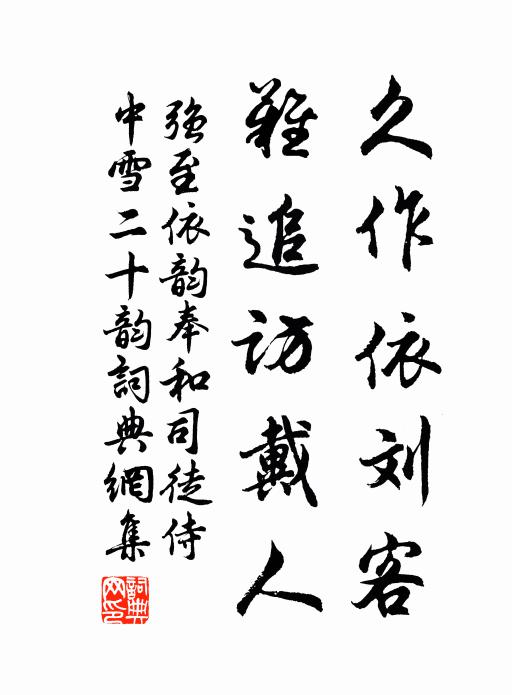 久作依刘客
難追訪戴人
强至依韵奉和司徒侍
中雪二十韵詞典網集
詞典
网印